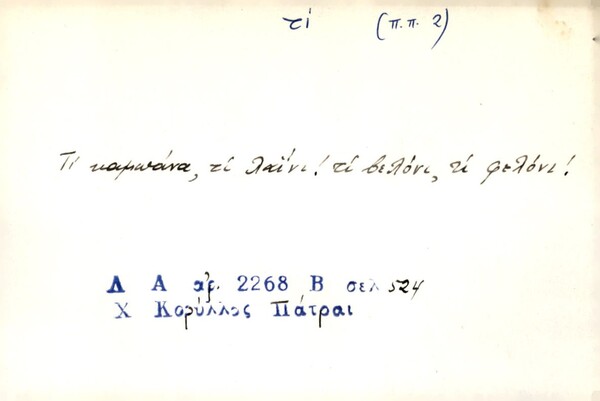 τί (π.π. 2)
Τί καμπάνα, τί λαΐνι! τί βελόνι, τί φελόνι!
Λ Α ἀρ. 2268 Β σελ 524
Χ Κορύλλος Πάτραι